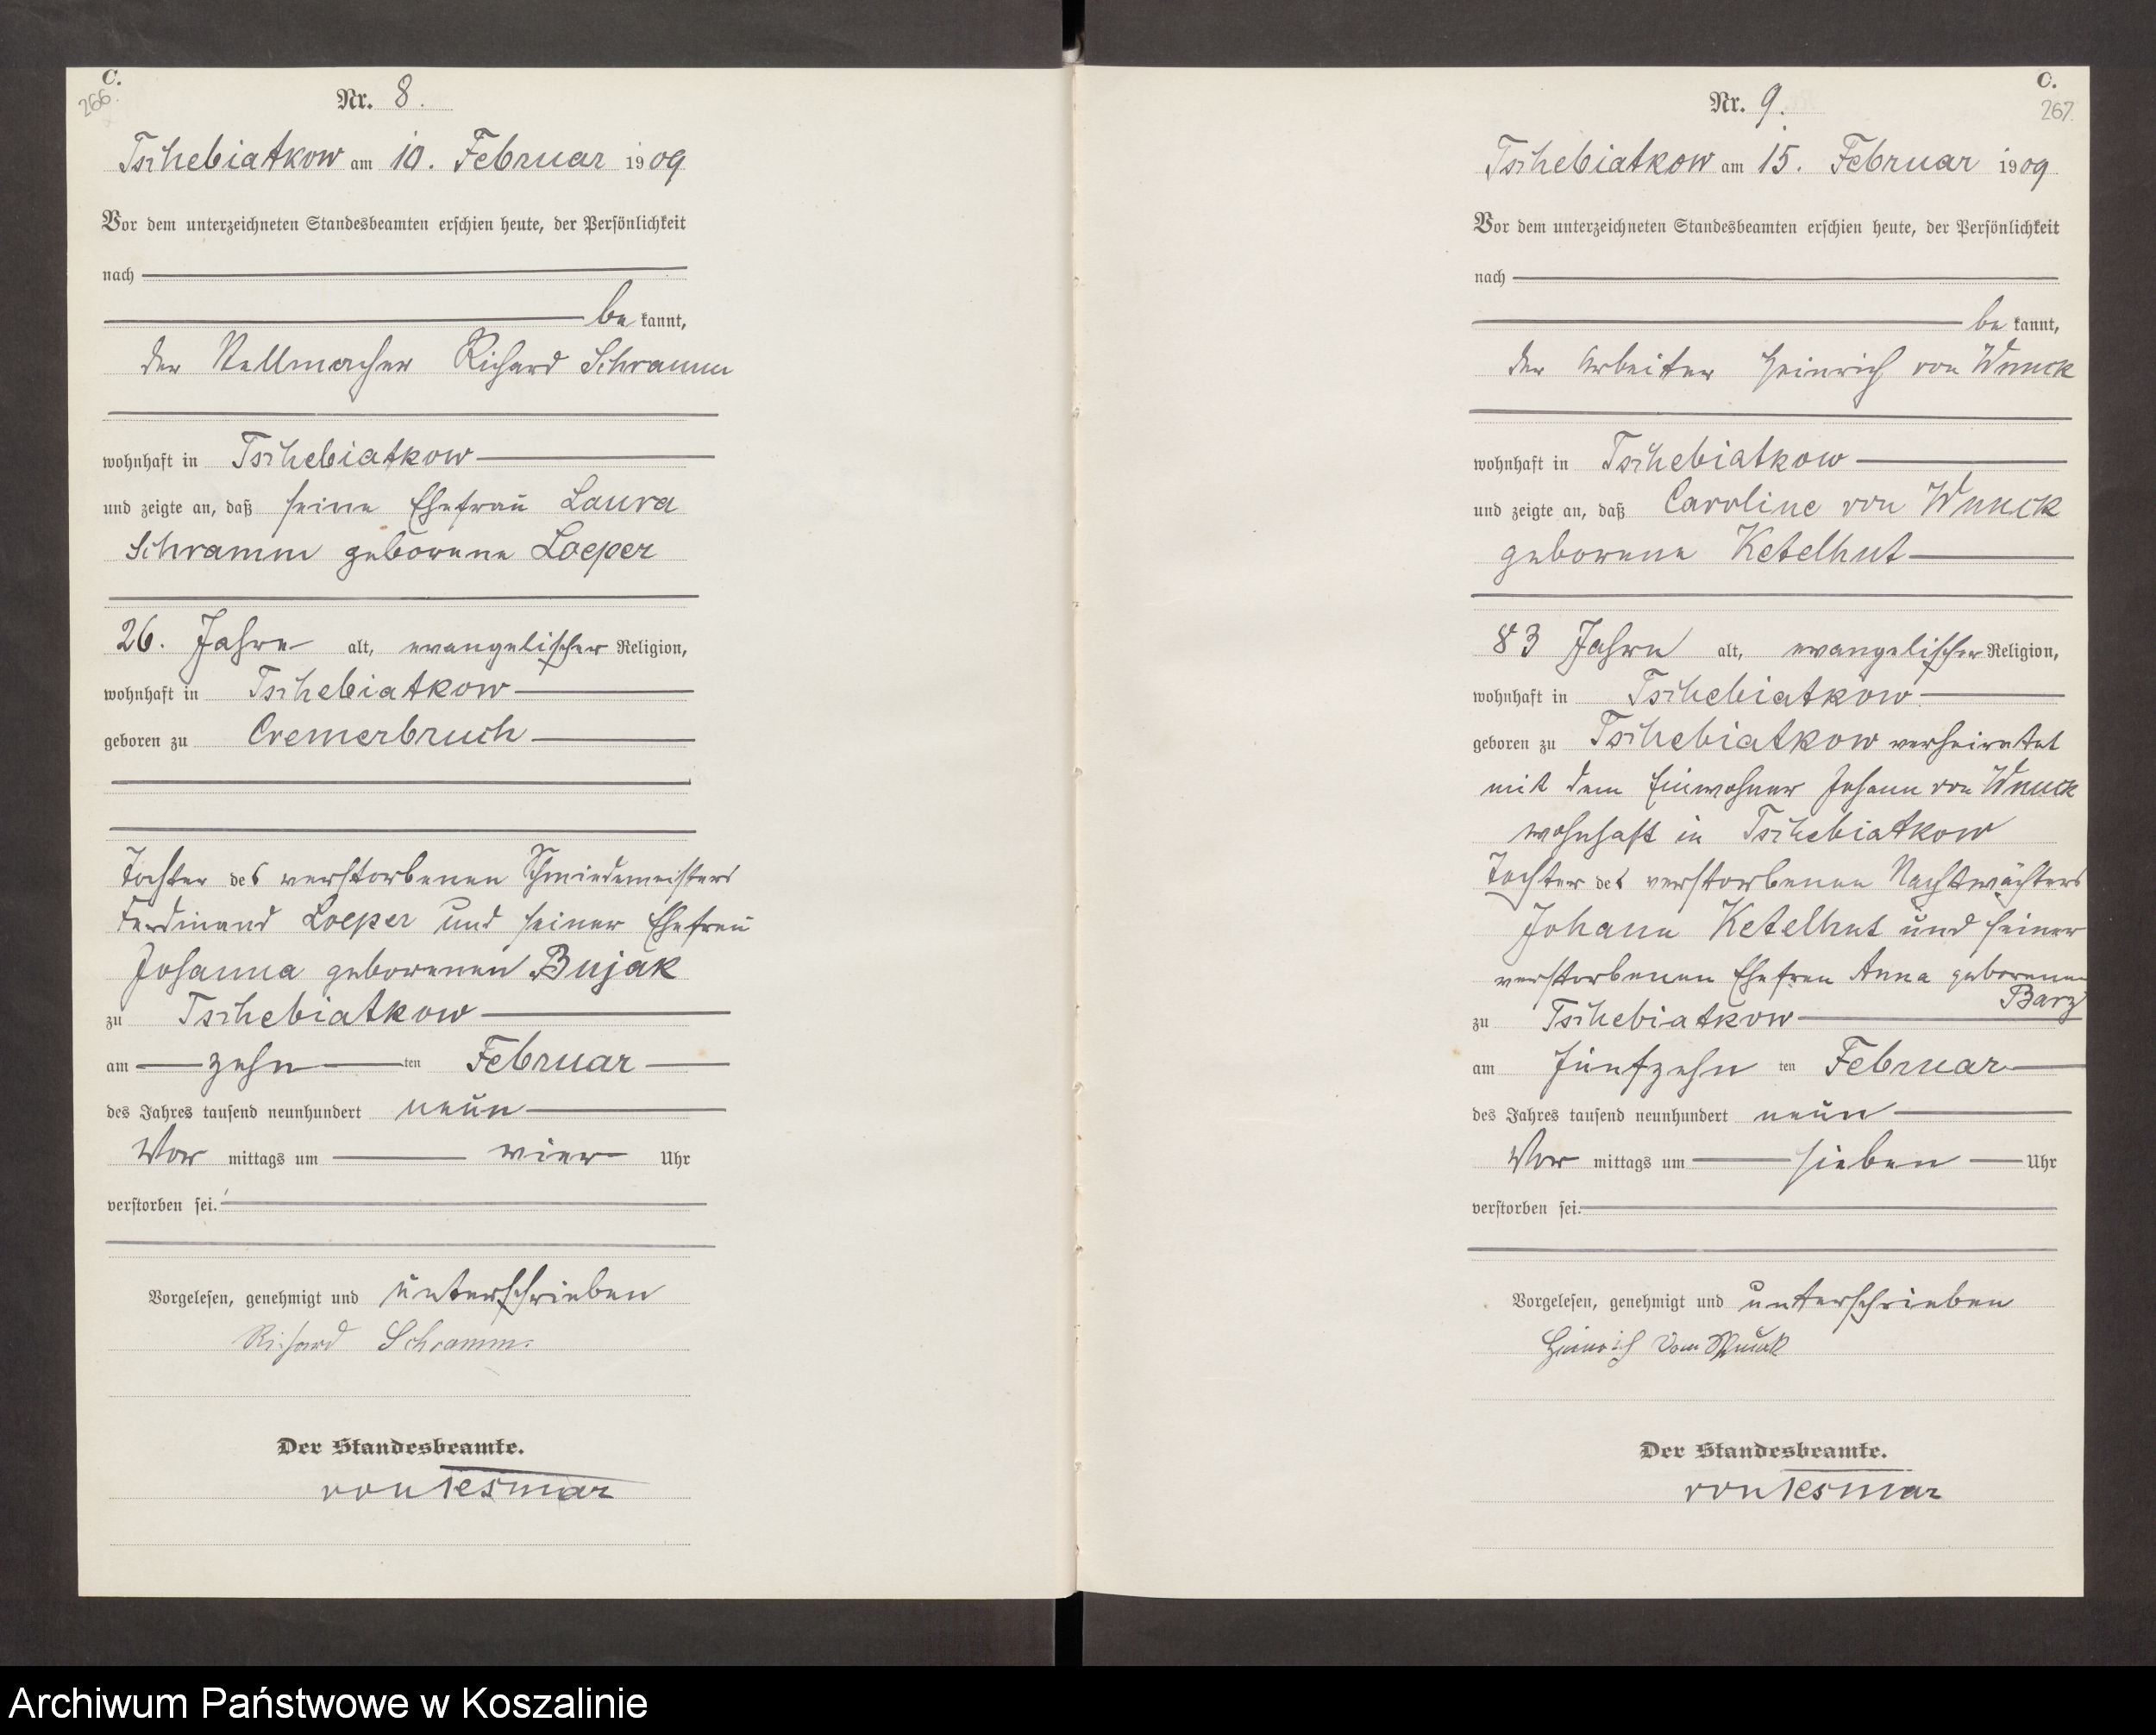 C.
266.
Nr. 8.
Tschebiatkow am 10. Februar 1909
Vor dem unterzeichneten Standesbeamten erschien heute, der Persönlichkeit
nach
be kannt,
der Stellmacher Richard Schramm
wohnhaft in Tschebiatkow
und zeigte an, daß seine Ehefrau Laura
Schramm geborene Loeper
26. Jahre alt, evangelischer Religion,
wohnhaft in Tschebiatkow
geboren zu Cremerbruch
Tochter des verstorbenen Schmiedemeisters
Ferdinand Loeper und seiner Ehefrau
Johanna geborenen Bujak
zu Tschebiatkow
am zehn ten Februar
des Jahres tausend neunhundert neun
Vor mittags um vier Uhr
verstorben sei.
Vorgelesen, genehmigt und unterschrieben
Richard Schramm.
Der Standesbeamte.
von Tesmar
C.
267.
Nr. 9.
Tschebiatkow am 15. Februar 1909
Vor dem unterzeichneten Standesbeamten erschien heute, der Persönlichkeit
nach
be kannt,
der Arbeiter Heinrich von Wnuck
wohnhaft in Tschebiatkow
und zeigte an, daß Caroline von Wnuck
geborene Ketelhut
83 Jahre alt, evangelischer Religion,
wohnhaft in Tschebiatkow
geboren zu Tschebiatkow verheiratet
mit dem Einwohner Johann von Wnuck
wohnhaft in Tschebiatkow
Tochter des verstorbenen Nachtwächters
Johann Ketelhut und seiner
verstorbenen Ehefrau Anna geborenen
Barz
zu Tschebiatkow
am fünfzehn ten Februar
des Jahres tausend neunhundert neun
Vor mittags um sieben Uhr
verstorben sei.
Vorgelesen, genehmigt und unterschrieben
Heinrich von Wnuck
Der Standesbeamte.
von Tesmar
Archiwum Państwowe w Koszalinie